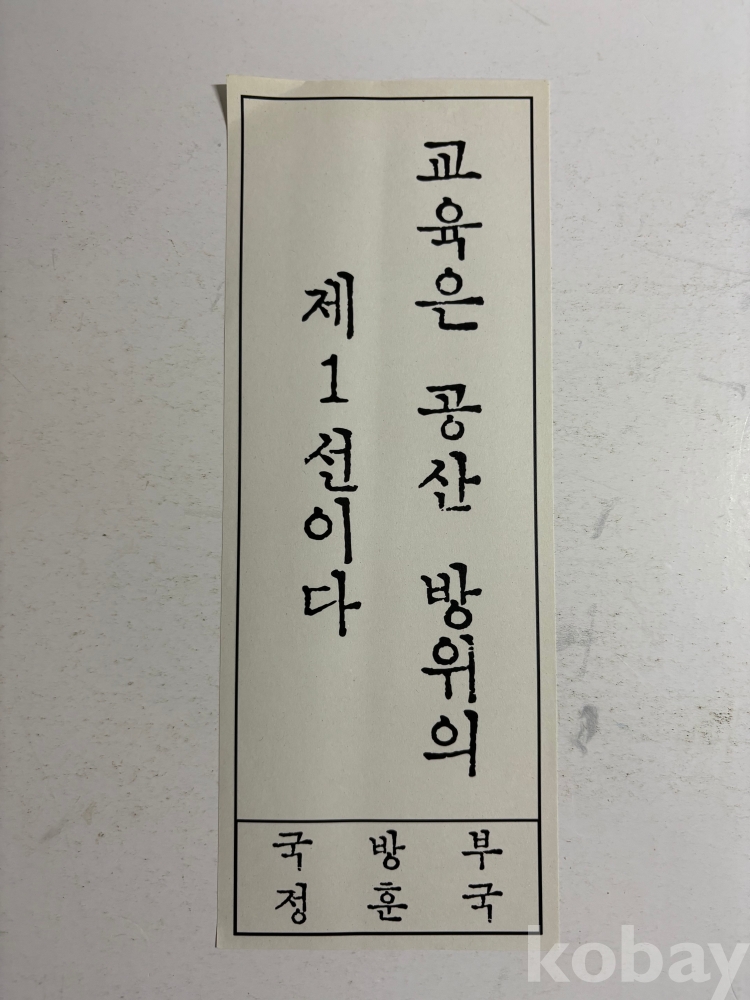 교육은 공산 방위의
제1선이다
국방부
정훈국
kobay